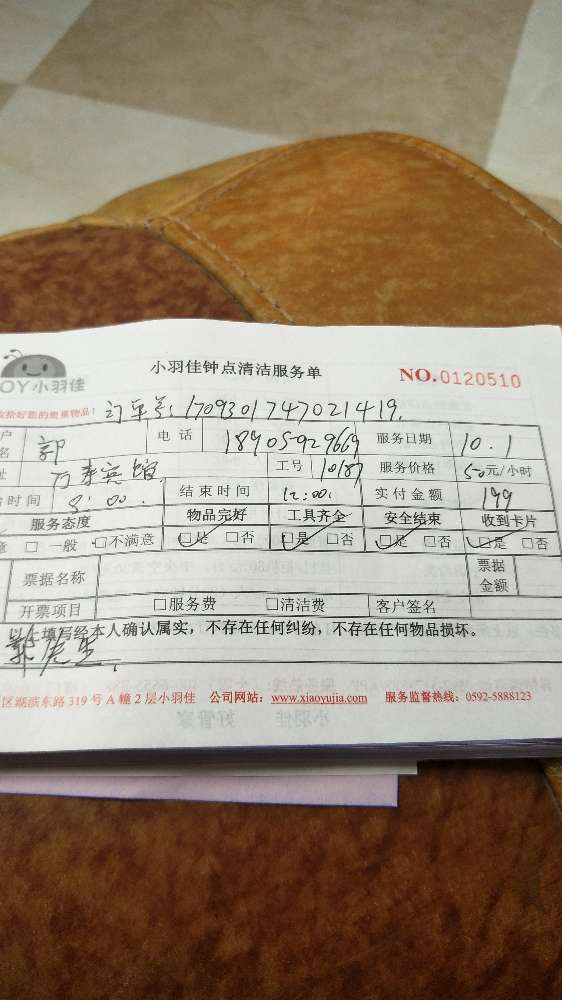 小羽佳钟点清洁服务单
NO.0120510
OY小羽佳
收拾好您的贵重物品!
订单号:1709301747021419.
户名 郭 电话 18905929669 服务日期 10.1
址 万来宾馆 工号 10187 服务价格 50元/小时
始时间 8:00. 结束时间 12:00. 实付金额 199
服务态度 物品完好 工具齐全 安全结束 收到卡片
意 □一般 □不满意 □是 □否 □是 □否 □是 □否 □是 □否
票据名称 票据金额
开票项目 □服务费 □清洁费 客户签名
以上填写经本人确认属实,不存在任何纠纷,不存在任何物品损坏。
郭先生.
区湖滨东路319号A幢2层小羽佳 公司网站:www.xiaoyujia.com 服务监督热线:0592-5888123